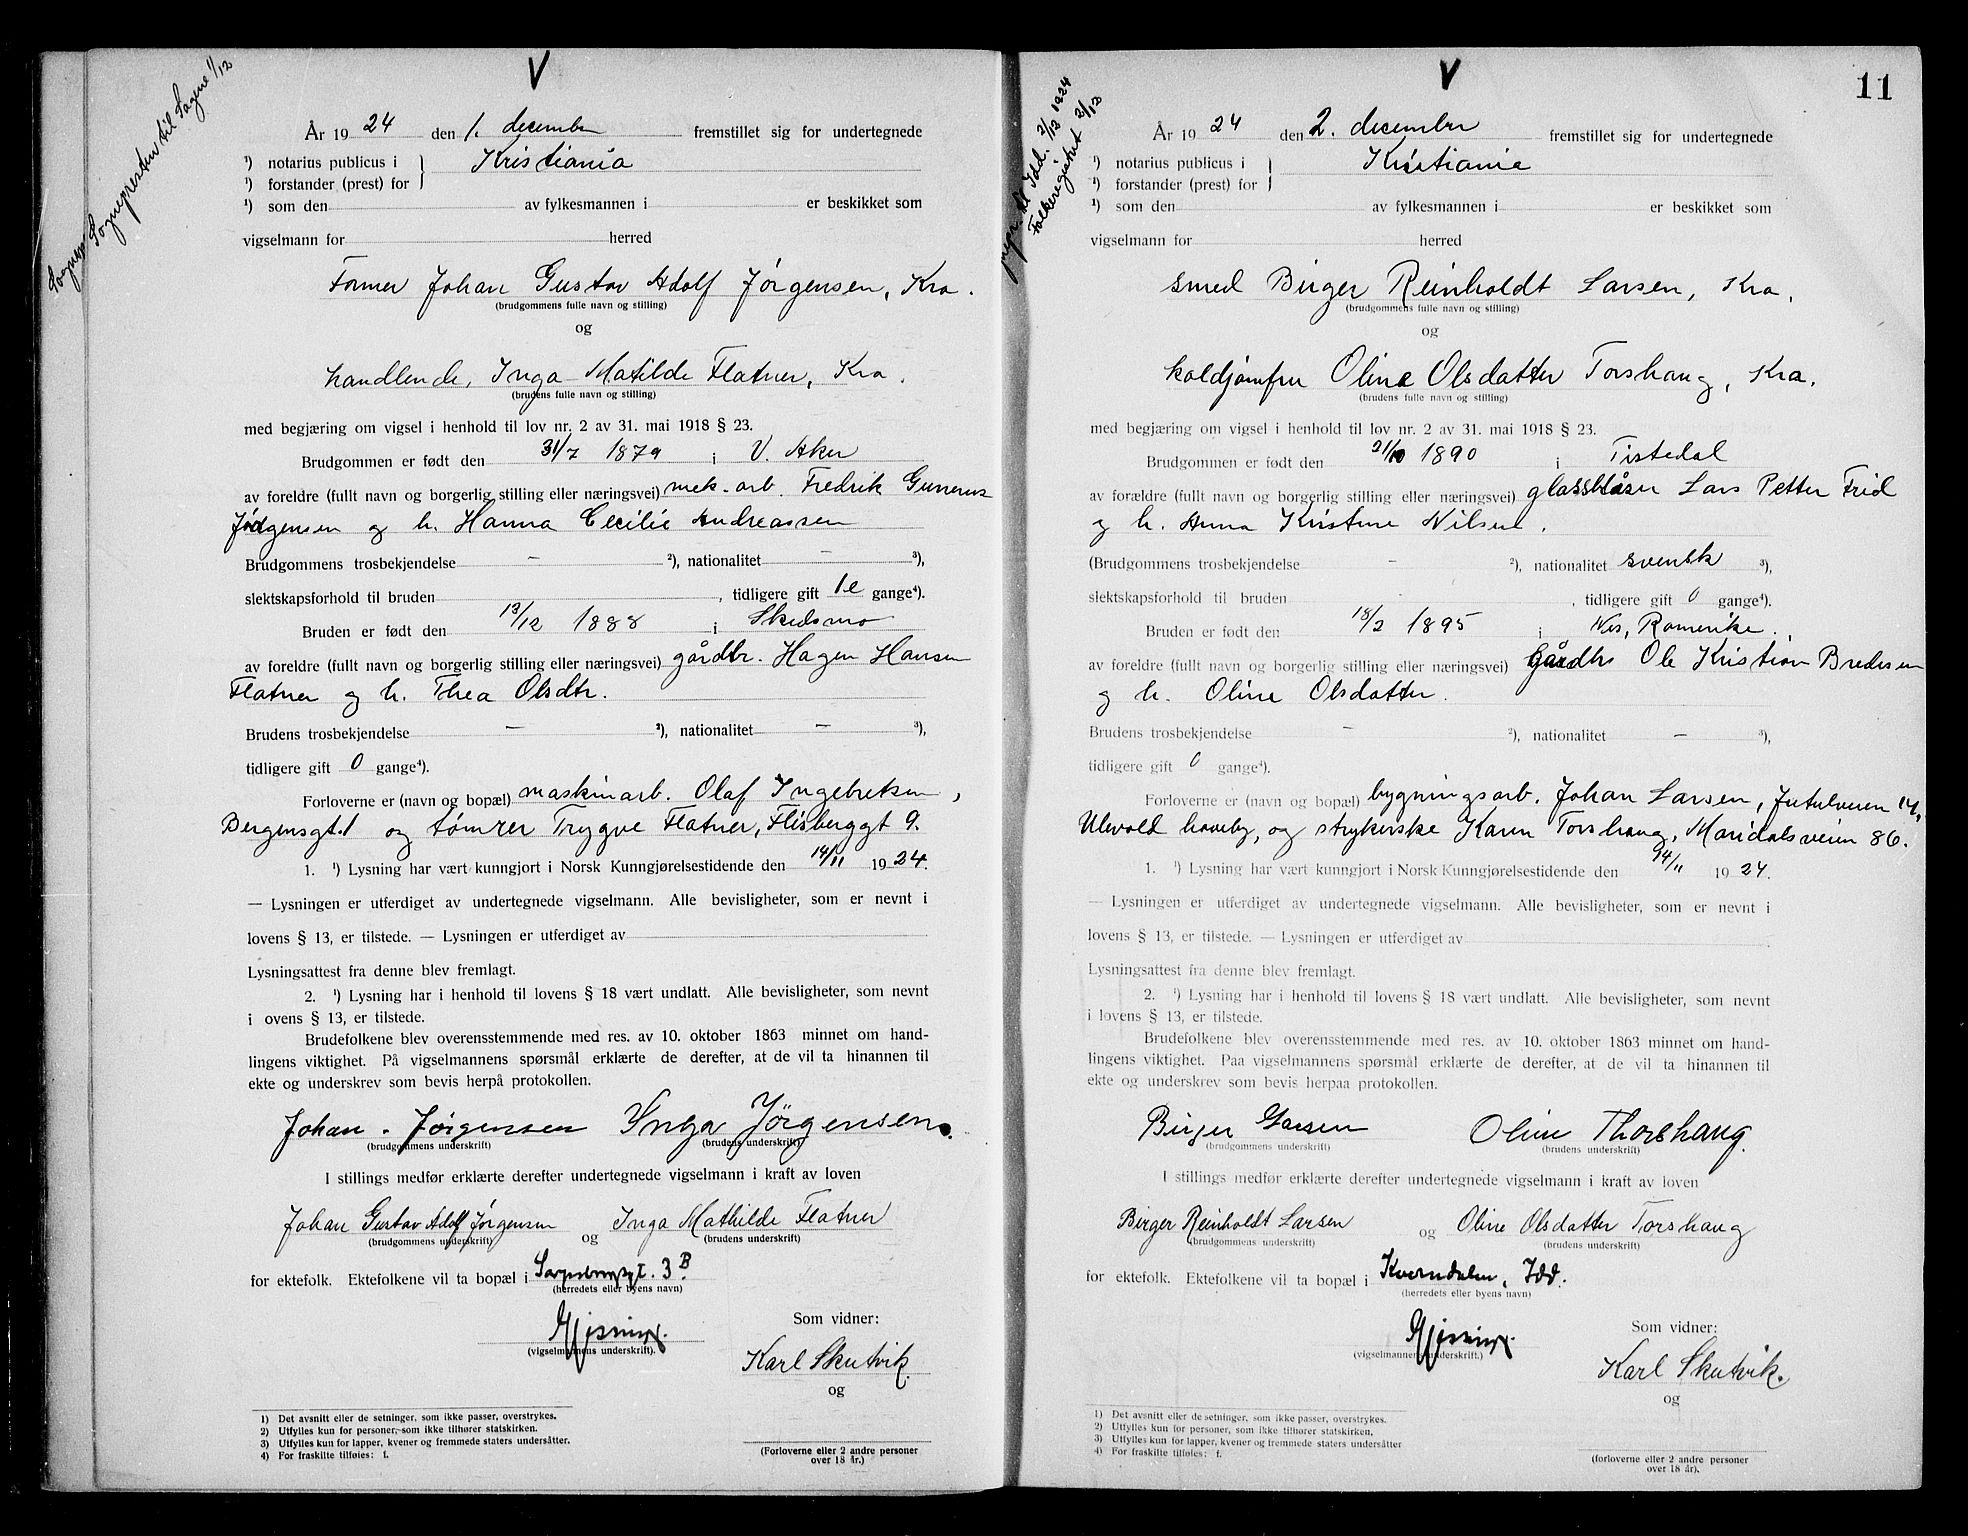 Sognepresten til Sagene 1/12
V
År 1924 den 1. december fremstillet sig for undertegnede
¹) notarius publicus i } Kristiania
¹) forstander (prest) for
¹) som den av fylkesmannen i er beskikket som
vigselmann for herred
Former Johan Gustav Adolf Jørgensen, Kra.
(brudgommens fulle navn og stilling)
og
handlende, Inga Matilde Flatner, Kra.
(brudens fulle navn og stilling)
med begjæring om vigsel i henhold til lov nr. 2 av 31. mai 1918 § 23.
Brudgommen er født den 31/7 1879 i V. Aker
av foreldre (fullt navn og borgerlig stilling eller næringsvei) mek. arb. Fredrik Gunerius
Jørgensen og h. Hanna Cecilie Andreassen
Brudgommens trosbekjendelse – ²), nationalitet – ³),
slektskapsforhold til bruden , tidligere gift 1e gange⁴).
Bruden er født den 13/12 1888 i Skedsmo
av foreldre (fullt navn og borgerlig stilling eller næringsvei) gårdbr. Hagen Hansen
Flatner og h. Thea Olsdtr.
Brudens trosbekjendelse – ²), nationalitet – ³),
tidligere gift 0 gange⁴).
Forloverne er (navn og bopæl) maskinarb. Olaf Ingebretsen,
Bergensgt. 1 og tømrer Trygve Flatner, Flisberggt 9.
1. ¹) Lysning har vært kunngjort i Norsk Kunngjørelsestidende den 14/11 1924.
— Lysningen er utferdiget av undertegnede vigselmann. Alle bevisligheter, som er nevnt i
lovens § 13, er tilstede. — Lysningen er utferdiget av
Lysningsattest fra denne blev fremlagt.
2. ¹) Lysning har i henhold til lovens § 18 vært undlatt. Alle bevisligheter, som nevnt
i ovens § 13, er tilstede.
Brudefolkene blev overensstemmende med res. av 10. oktober 1863 minnet om hand-
lingens viktighet. På vigselmannens spørsmål erklærte de derefter, at de vil ta hinannen til
ekte og underskrev som bevis herpå protokollen.
Johan Jørgensen Inga Jørgensen.
(brudgommens underskrift) (brudens underskrift)
I stillings medfør erklærte derefter undertegnede vigselmann i kraft av loven
Johan Gustav Adolf Jørgensen og Inga Mathilde Flatner
(brudgommens underskrift) (brudens underskrift)
for ektefolk. Ektefolkene vil ta bopæl i Sarpsborggt. 3B.
(herredets eller byens navn)
Gjessing.
(vigselmannens underskrift).
Som vidner:
Karl Skutvik.
og
1) Det avsnitt eller de setninger, som ikke passer, overstrykes.
2) Utfylles kun for personer, som ikke tilhører statskirken.
3) Utfylles kun for lapper, kvener og fremmede staters undersåtter.
4) For fraskilte tilføies: f.
(Forloverne eller 2 andre personer
over 18 år.)
11
V
spr. til Idd. 2/12 1924
Folkeregistret 2/12
År 1924 den 2. december fremstillet sig for undertegnede
¹) notarius publicus i } Kristiania
¹) forstander (prest) for
¹) som den av fylkesmannen i er beskikket som
vigselmann for herred
smed Birger Reinholdt Larsen, Kra.
(brudgommens fulle navn og stilling)
og
koldjomfru Oline Olsdatter Torshaug, Kra.
(brudens fulle navn og stilling)
med begjæring om vigsel i henhold til lov nr. 2 av 31. mai 1918 § 23.
Brudgommen er født den 21/10 1890 i Tistedal
av forældre (fullt navn og borgerlig stilling eller næringsvei) glassblåser Lars Petter Frid
og h. Anna Kristine Nilsen.
(Brudgommens trosbekjendelse - ²), nationalitet svensk ³),
slektskapsforhold til bruden , tidligere gift 0 gange⁴).
Bruden er født den 18/2 1895 i Nes, Romerike.
av foreldre (fullt navn og borgerlig stilling eller næringsvei) Gårdbr Ole Kristian Bredesen
og h. Oline Olsdatter.
Brudens trosbekjendelse – ²), nationalitet – ³),
tidligere gift 0 gange⁴).
Forloverne er (navn og bopæl) bygningsarb. Johan Larsen, Jutulveien 14,
Ulevold haveby, og strykerske Karen Torshaug, Maridalsveien 86.
1. ¹) Lysning har vært kunngjort i Norsk Kunngjørelsestidende den 14/11 1924.
— Lysningen er utferdiget av undertegnede vigselmann. Alle bevisligheter, som er nevnt i
lovens § 13, er tilstede. — Lysningen er utferdiget av
Lysningsattest fra denne blev fremlagt.
2. ¹) Lysning har i henhold til lovens § 18 vært undlatt. Alle bevisligheter, som nevnt
i lovens § 13, er tilstede.
Brudefolkene blev overensstemmende med res. av 10. oktober 1863 minnet om hand-
lingens viktighet. Paa vigselmannens spørsmål erklærte de derefter, at de vil ta hinannen til
ekte og underskrev som bevis herpaa protokollen.
Birger Larsen Oline Thorshaug.
(brudgommens underskrift) (brudens underskrift)
I stillings medfør erklærte derefter undertegnede vigselmann i kraft av loven
Birger Reinholdt Larsen og Oline Olsdatter Torshaug
(brudgommens underskrift) (brudens underskrift)
for ektefolk. Ektefolkene vil ta bopæl i Kverndalen, Idd.
(herredets eller byens navn)
Gjessing.
(vigselmannens underskrift.)
Som vidner:
Karl Skutvik.
og
1) Det avsnitt eller de setninger, som ikke passer, overstrykes.
2) Utfylles kun for personer, som ikke tilhører statskirken.
3) Utfylles kun for lapper, kvener og fremmede staters undersåtter
4) For fraskilte tilføies: f.
(forloverne eller 2 andre personer
over 18 år).